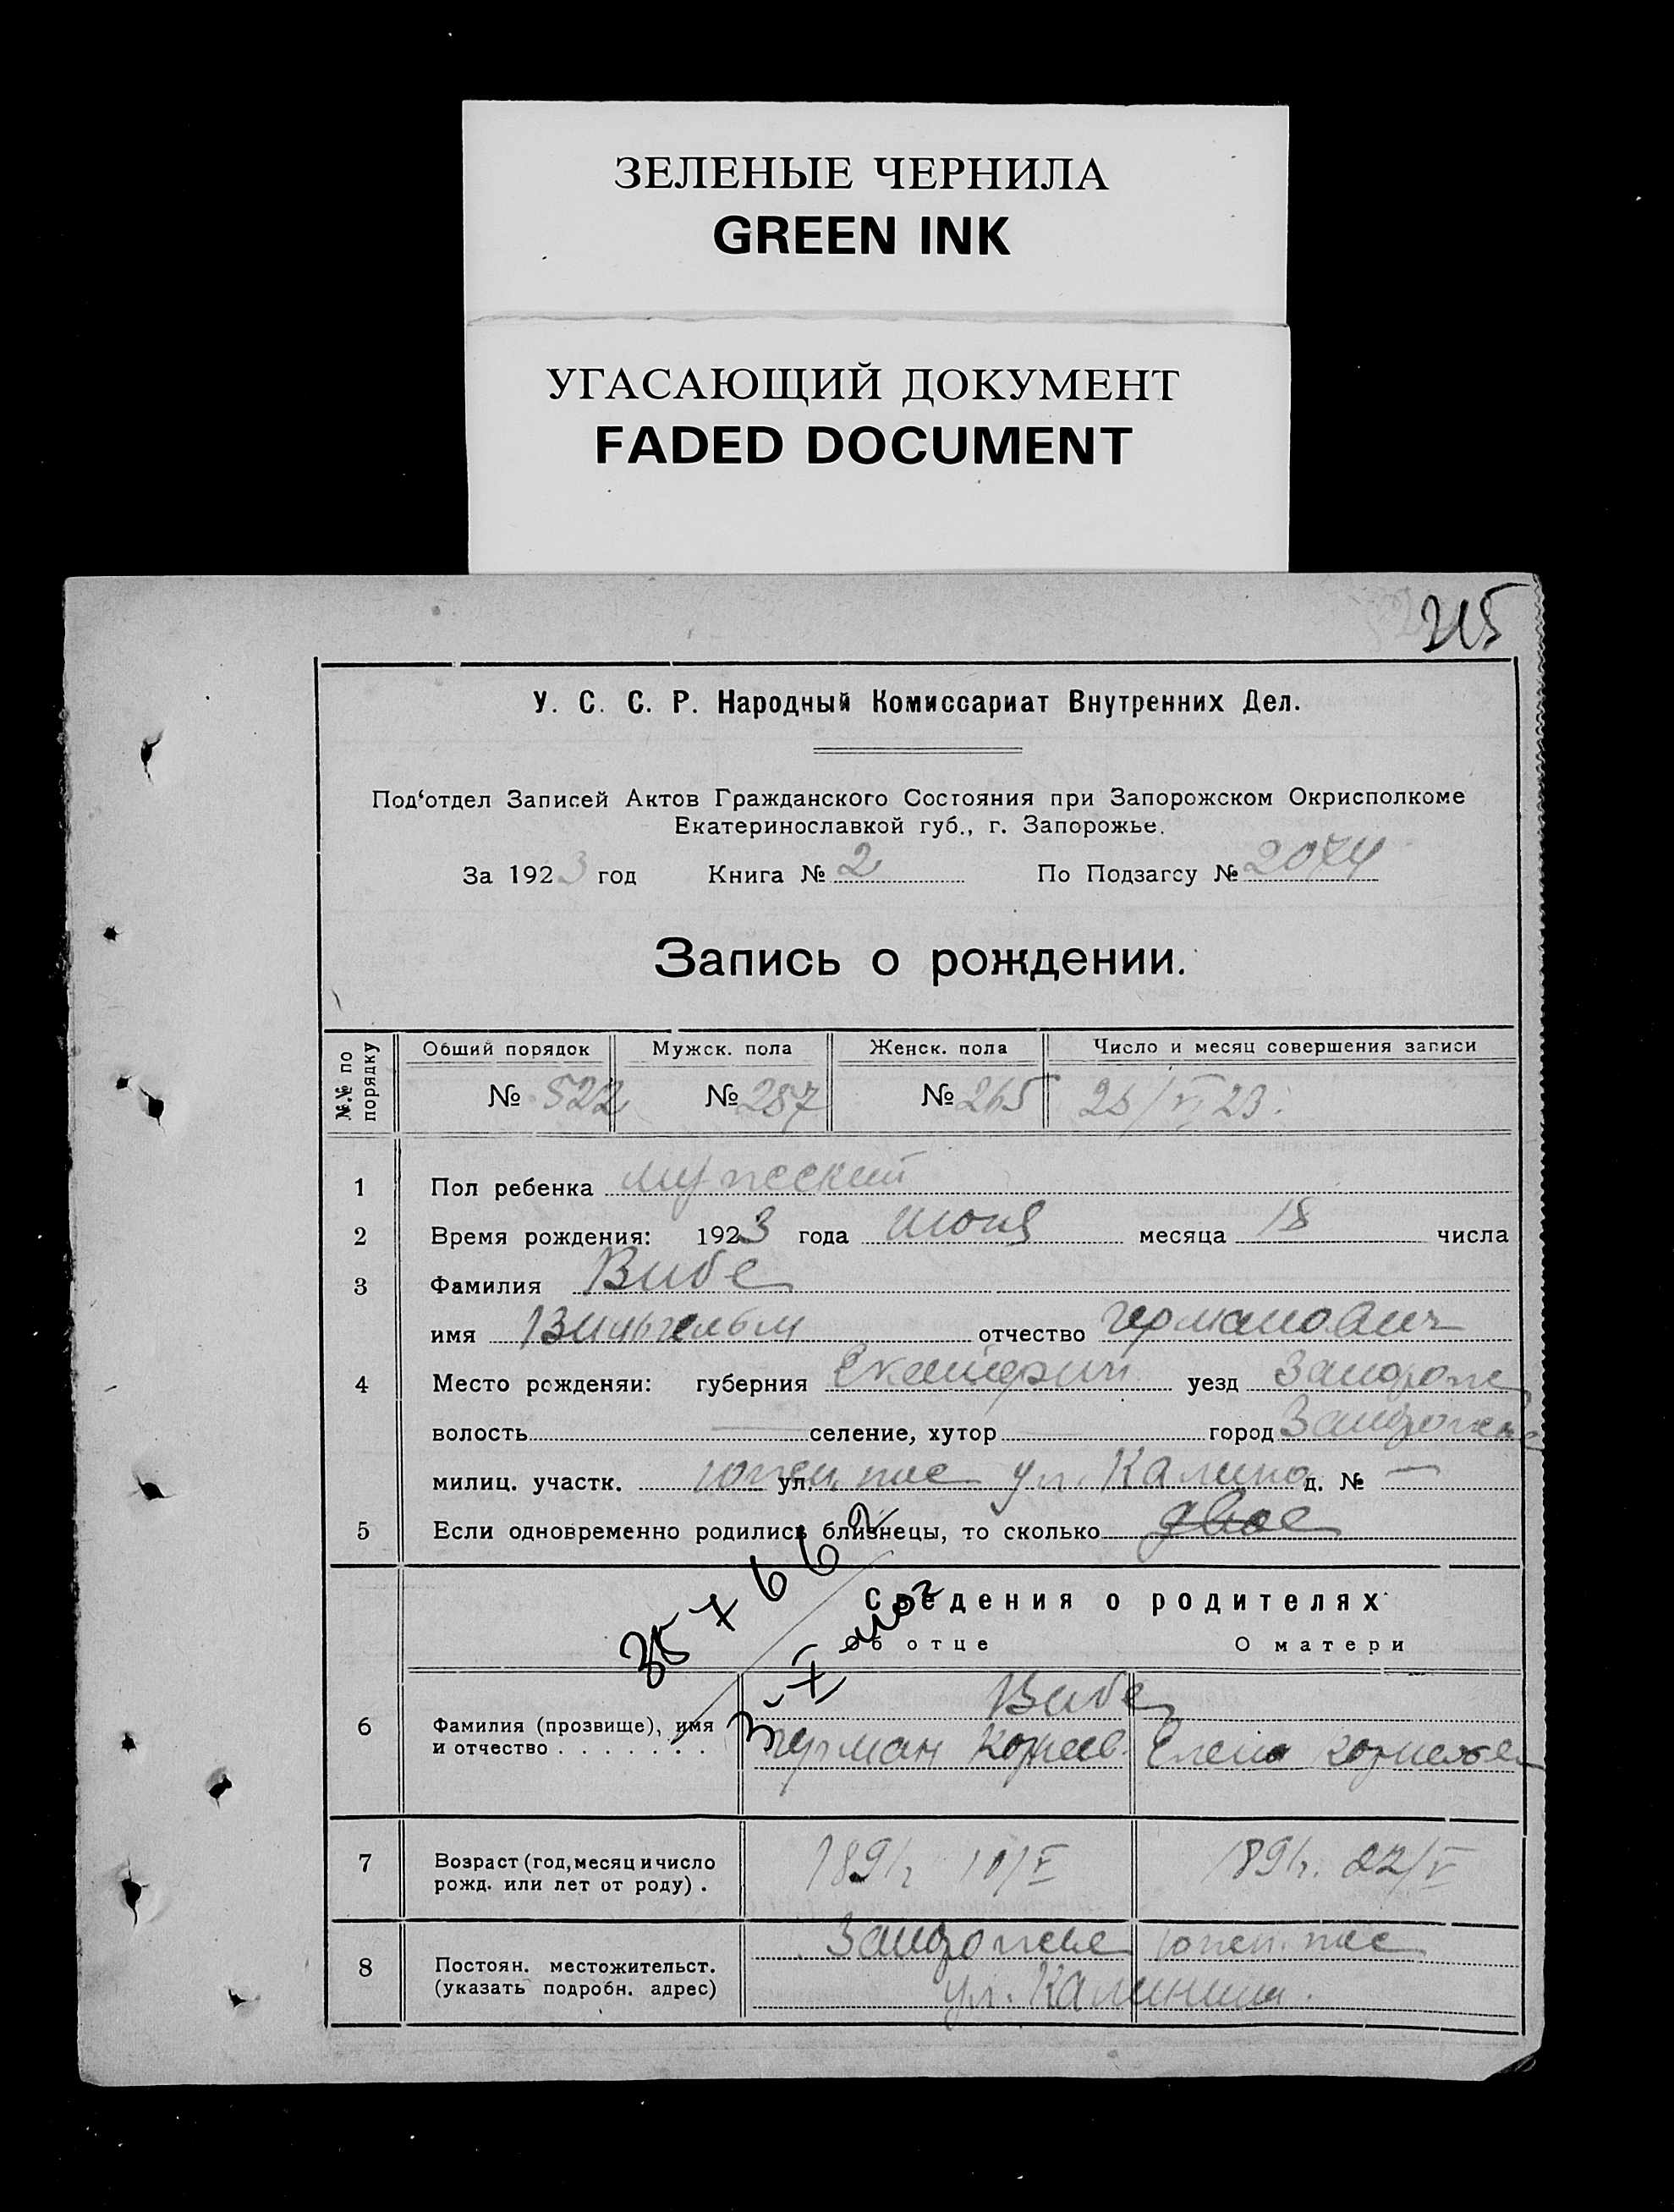 ЗЕЛЕНЫЕ ЧЕРНИЛА
GREEN INK
УГАСАЮЩИЙ ДОКУМЕНТ
FADED DOCUMENT
215
У. С. С. Р. Народный Комиссариат Внутренних Дел.
Под‘отдел Записей Актов Гражданского Состояния при Запорожском Окрисполкоме
Екатеринославкой губ., г. Запорожье.
За 1923 год Книга № 2 По Подзагсу № 2074
Запись о рождении.
№.№ по порядку
Обший порядок Мужск. пола Женск. пола Число и месяц совершения записи
№ 522 № 287 № 265 25/VI 23.
1 Пол ребенка мужеский
2 Время рождения: 1923 года июня месяца 18 числа
3 Фамилия Вибе
имя Вильгельм отчество Германович
4 Место рожденяи: губерния Екатерин уезд Запорож
волость — селение, хутор город Запорожье
милиц. участк. ул. ул. Калино д. № —
5 Если одновременно родились близнецы, то сколько двое
35766
Сведения о родителях
Об отце О матери
6 Фамилия (прозвище), имя Вибе
и отчество . . . . . . . Герман Корнеев. Елена Корнеев
7 Возраст (год, месяц и число 1891г 10/V 1891г. 22/V
рожд. или лет от роду) .
8 Постоян. местожительст. Запорожье
(указать подробн. адрес) ул. Калинина.